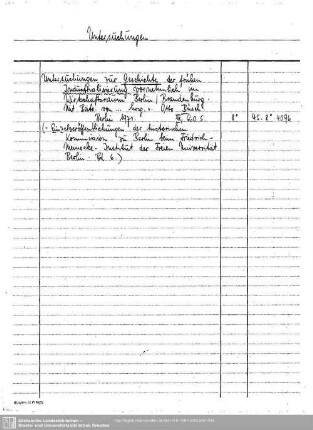 Untersuchungen
Untersuchungen zur Geschichte der frühen
Industrialisierung vornehmlich im
Wirtschaftsraum Berlin/Brandenburg.
Mit Beitr. von ... hrsg. v. Otto Büsch
Berlin 1971. 8° 45. 8° 4096
(= Einzelveröffentlichungen der Historischen
Kommission zu Berlin beim Friedrich-
Meinecke-Institut der Freien Universität
Berlin. Bd 6.)
Sächsische Landesbibliothek -
Staats- und Universitätsbibliothek Dresden